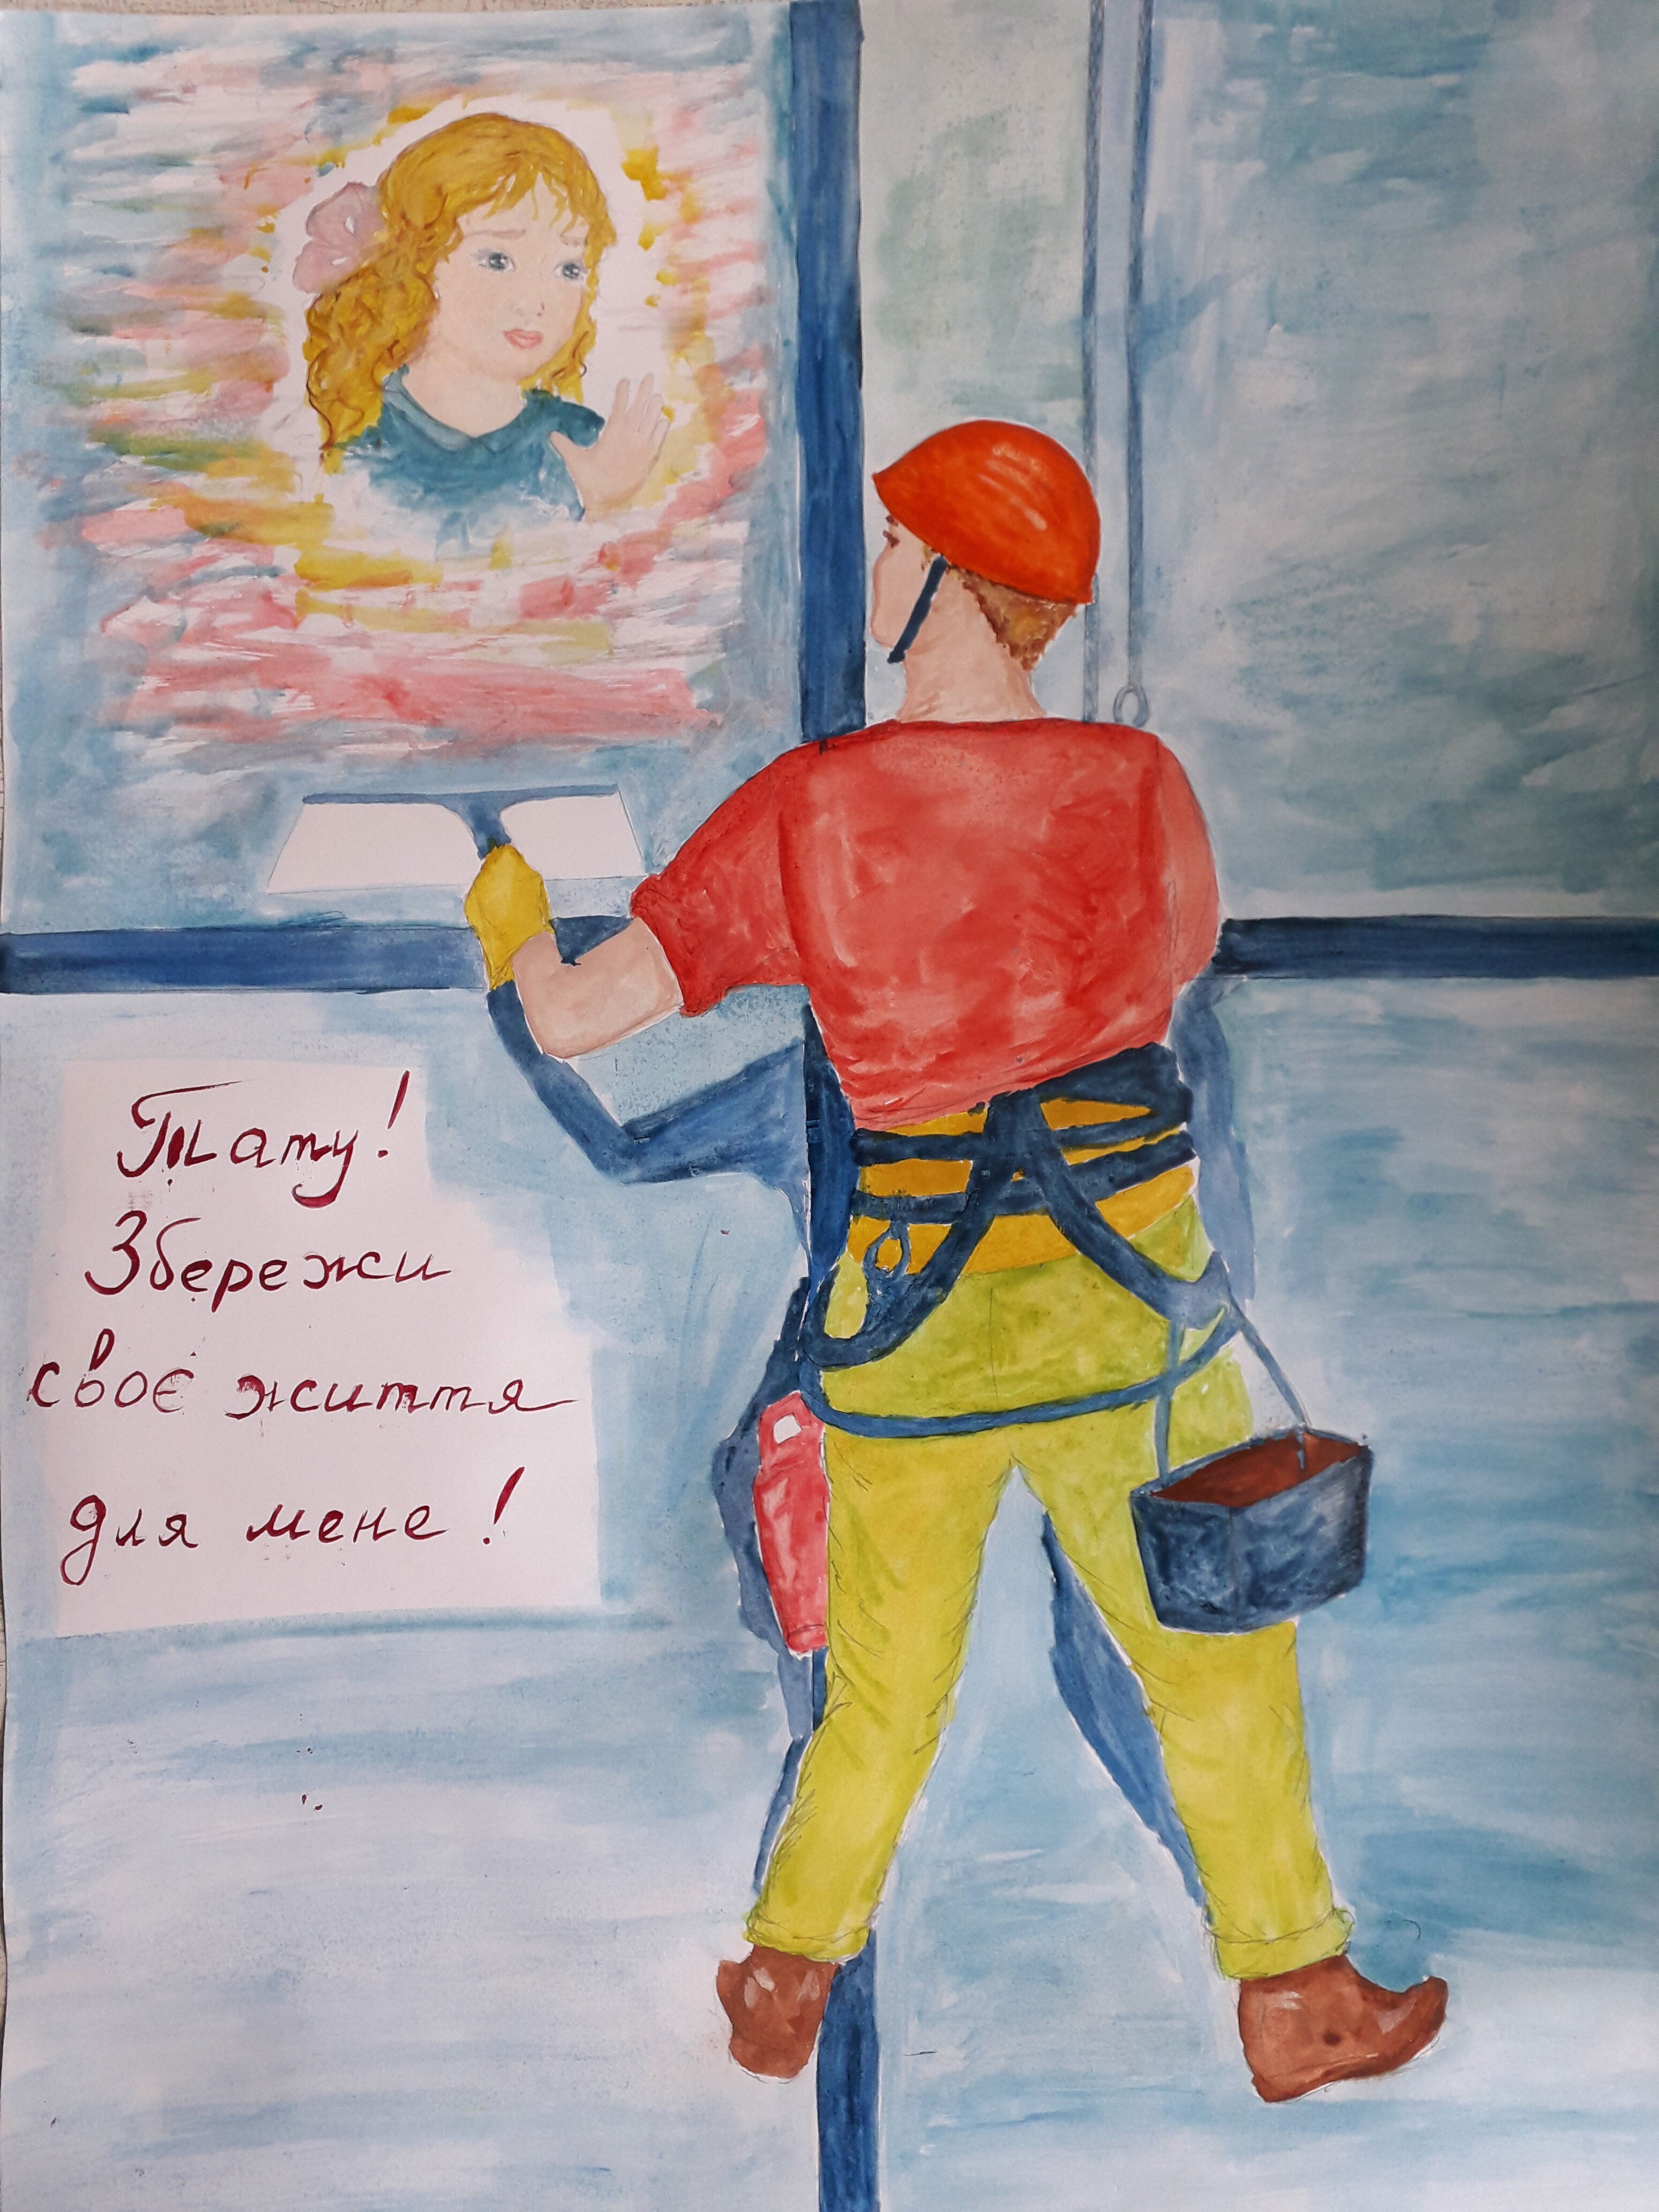 Тату!
Збережи
своє життя
для мене!